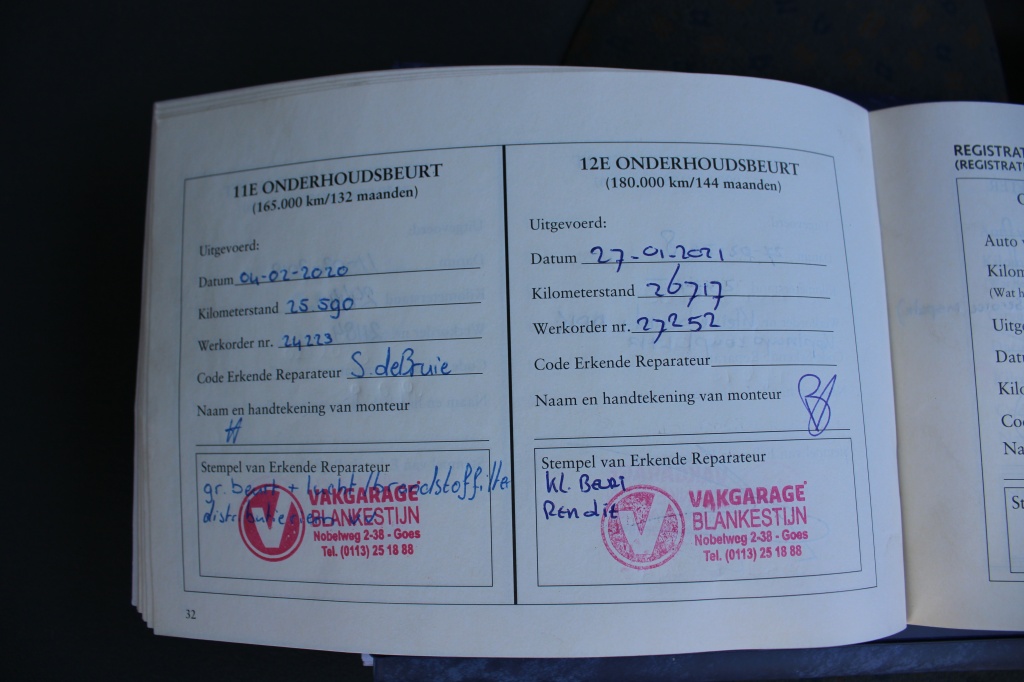 11E ONDERHOUDSBEURT
(165.000 km/132 maanden)
Uitgevoerd:
Datum 04-02-2020
Kilometerstand 25.590
Werkorder nr. 24223
Code Erkende Reparateur S. deBruie
Naam en handtekening van monteur
Stempel van Erkende Reparateur
gr. beurt + lucht/brandstoffilter
VAKGARAGE
BLANKESTIJN
Nobelweg 2-38 - Goes
Tel. (0113) 25 18 88
32
12E ONDERHOUDSBEURT
(180.000 km/144 maanden)
Uitgevoerd:
Datum 27-01-2021
Kilometerstand 26717
Werkorder nr. 27252
Code Erkende Reparateur
Naam en handtekening van monteur
Stempel van Erkende Reparateur
Kl. Beurt
VAKGARAGE
BLANKESTIJN
Nobelweg 2-38 - Goes
Tel. (0113) 25 18 88
REGISTRAT
(REGISTRAT
Auto v
Kilom
(Wat h
Uitge
Datu
Kilo
Co
Na
St